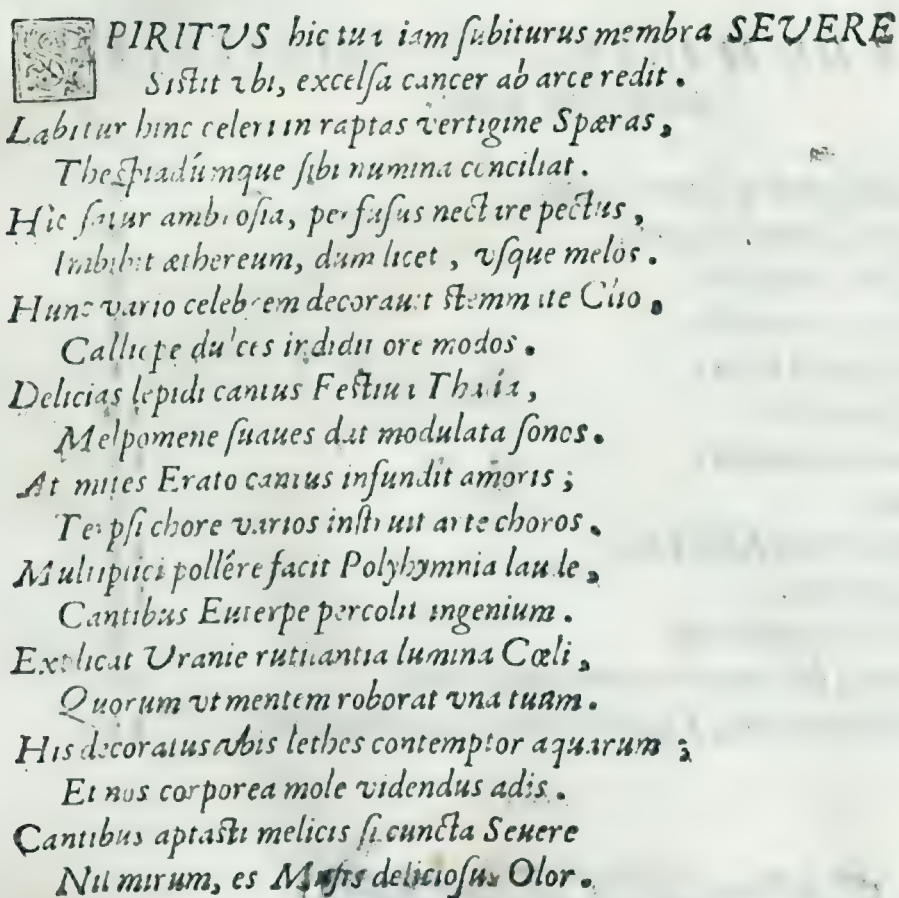 SPIRITUS hic tui iam ſubiturus membra SEVERE
Siſtit vbi, excelſa cancer ab arce redit.
Labitur hinc celeri in raptas vertigine Spæras,
Theſpiadúmque ſibi numina conciliat.
Hic ſatur ambroſia, perfuſus nectare pectus,
Imbibit æthereum, dum licet, vſque melos.
Hunc vario celebrem decorauit ſtemmate Clio,
Calliope dulces indidit ore modos.
Delicias lepidi cantus Feſtiui Thalia,
Melpomene ſuaues dat modulata ſonos.
At mites Erato cantus infundit amoris;
Terpſichore varios inſtruit arte choros.
Multiplici pollére facit Polyhymnia laude,
Cantibus Euterpe percolit ingenium.
Explicat Uranie rutilantia lumina Cœli,
Quorum vt mentem roborat vna tuam.
His decoratus abis lethes contemptor aquarum;
Et nos corporea mole videndus adis.
Cantibus aptaſti melicis ſi cuncta Seuere
Nil mirum, es Muſis delicioſus Olor.